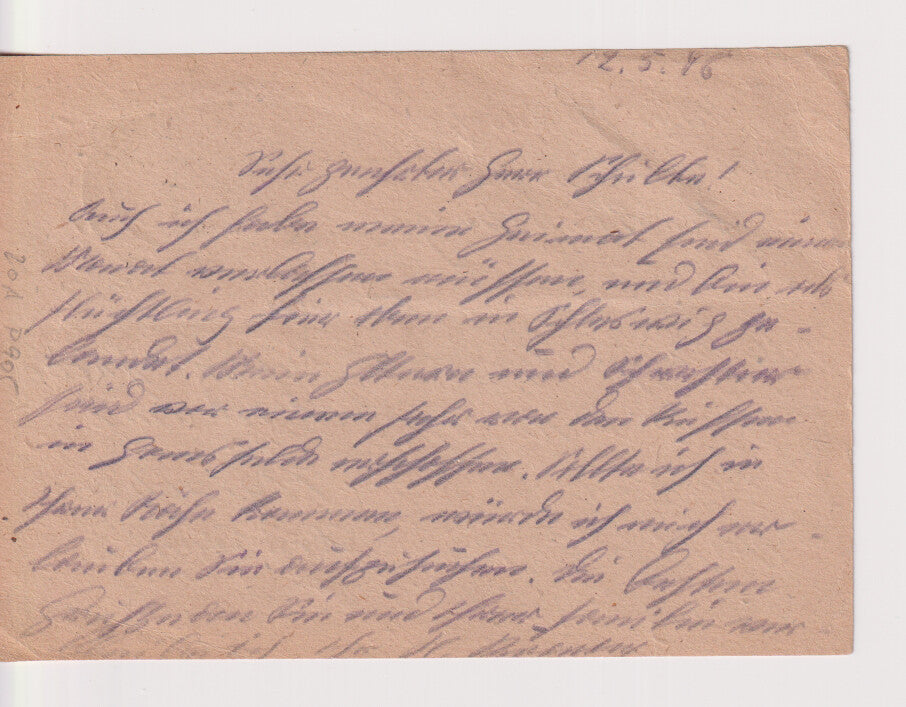 12.5.46
Sehr geehrter Herr Schulte!
Auch ich habe meine Heimat und
verlassen müssen, und bin als
Flüchtling hier oben in Schleswig ge-
landet. Meine Eltern und Schwester
sind vor einem Jahr von den Russen
in erschossen. Sollte ich in
Ihre Nähe kommen, würde ich mich er-
lauben Sie aufzusuchen. Die besten
Grüße Sie und Ihrer Familie
Ihr